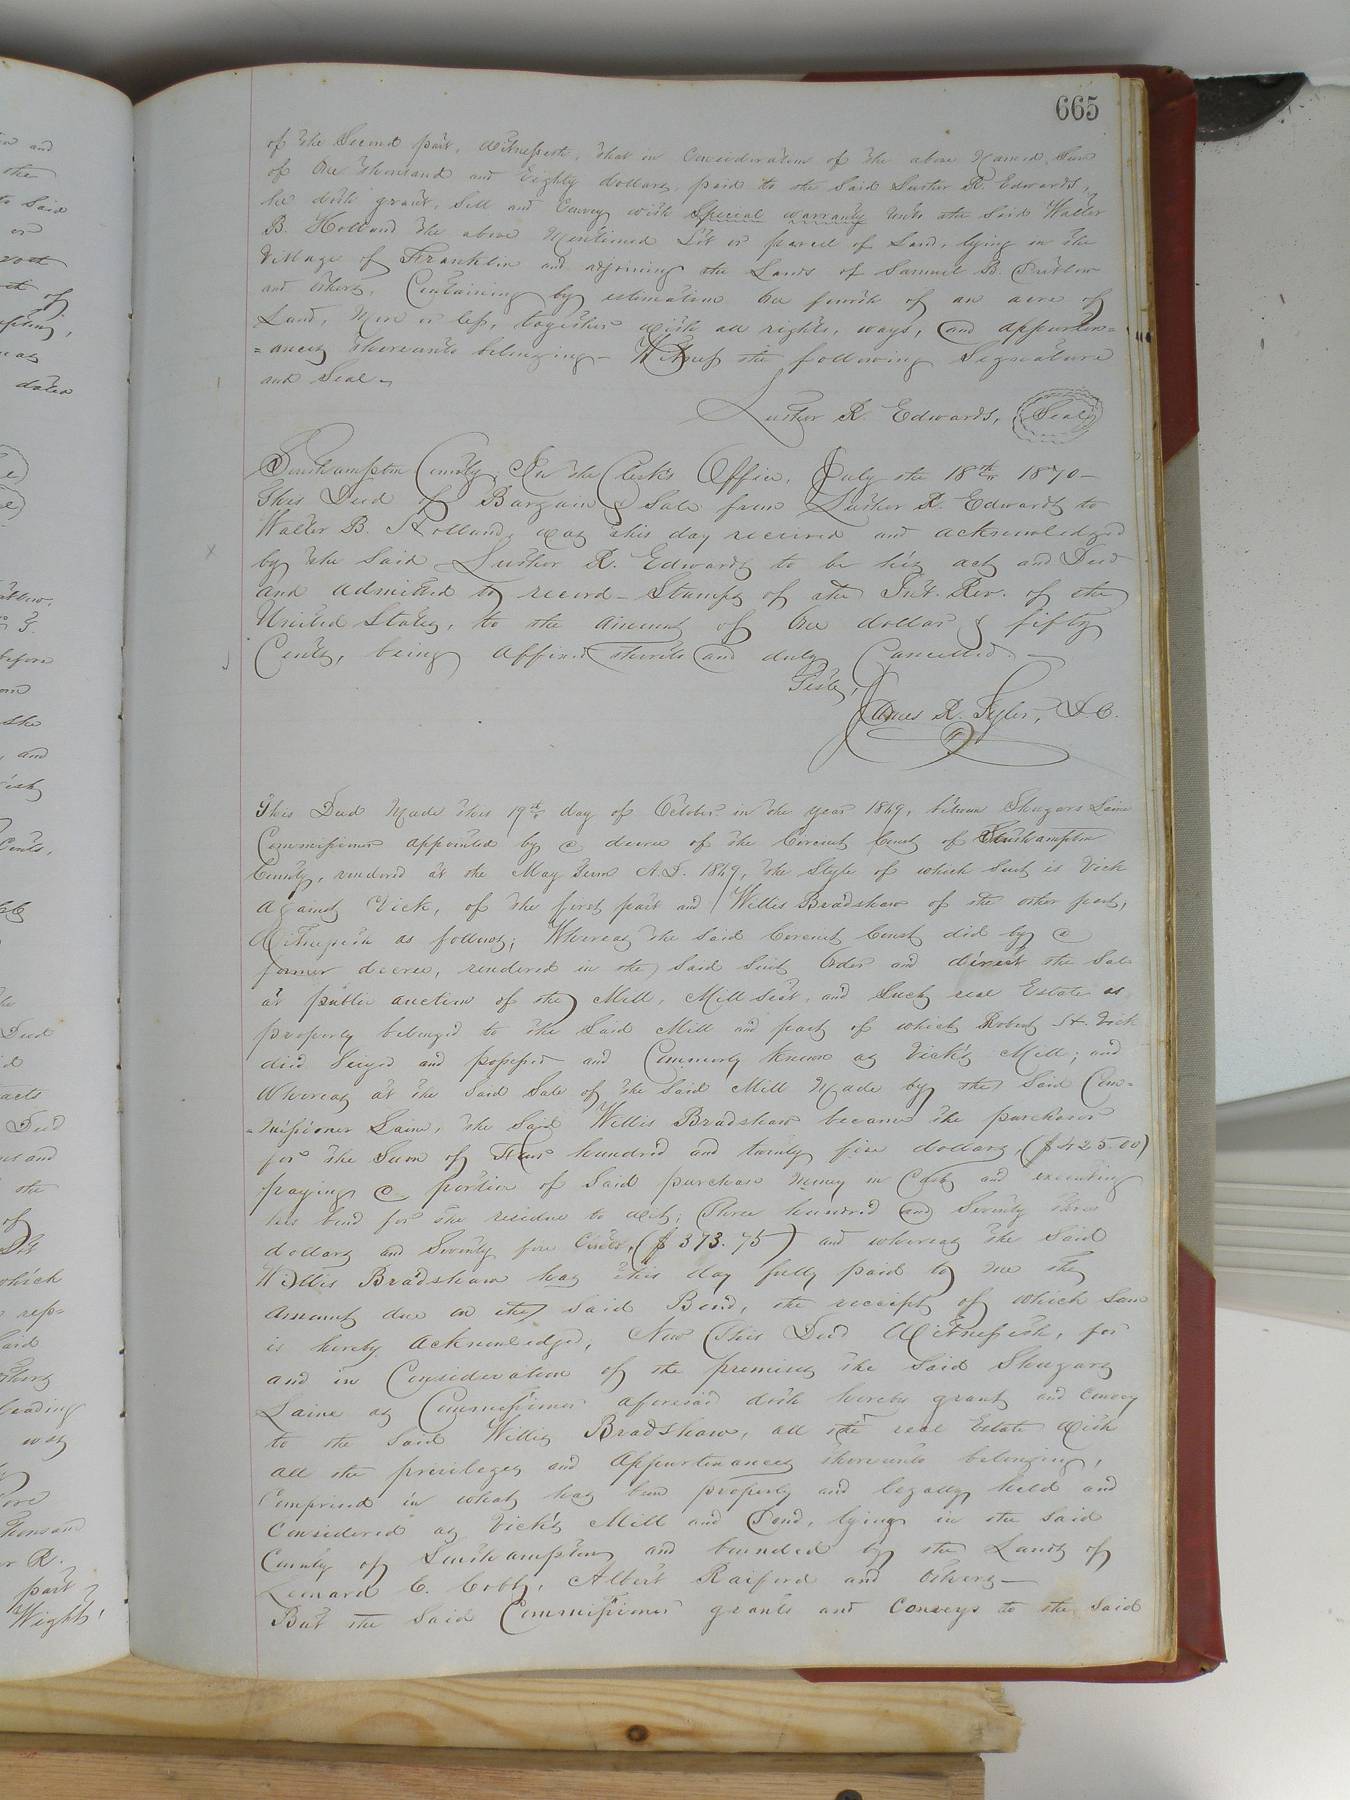 665
of the Second part, Witnesseth, that in Consideration of the above Named Sum
of One thousand and Eighty dollars, paid to the Said Luther R. Edwards,
he doth grant, Sell and Convey with Special warranty unto the Said Walter
B. Holland the above Mentioned Lot or parcel of Land, lying in the
Village of Franklin and adjoining the Lands of Samuel B. Pretlow
and others, Containing by estimation One fourth of an acre of
Land, More or less, together with all rights, ways, and appurten=
=ances thereunto belonging - Witness the following Signature
and Seal -
Luther R. Edwards, Seal
Southampton County; In the Clerk's Office, July the 18th 1870 -
This Deed of Bargain & Sale from Luther R. Edwards to
Walter B. Holland, was this day received and acknowledged
by the Said Luther R. Edwards to be his act and Deed
and admitted to record - Stamps of the Int. Rev. of the
United States, to the amount of One dollar & fifty
Cents, being affixed thereto and duly Cancelled. -
Teste,
James R. D.C.
This Deed Made this 19th day of October in the year 1849, between Shugars Laine
Commissioner appointed by a decree of the Circuit Court of Southampton
County, rendered at the May Term A.D. 1849, the Style of which Suit is Vick
against Vick, of the first part and Willis Bradshaw of the other part,
Witnesseth as follows; Whereas the Said Circuit Court did by a
former decree, rendered in the Said Suit Order and direct the Sale
at public auction of the Mill, Mill Seat, and Such real Estate as
property belonged to the Said Mill and part of which Robert H. Vick
died Seized and possessed and Commonly Known as Vick's Mill; and
Whereas at the Said Sale of the Said Mill Made by the Said Com=
=missioner Laine, the Said Willis Bradshaw became the purchaser
for the Sum of Four hundred and twenty five dollars, ($425.00)
paying a portion of Said purchase money in Cash and executing
his bond for the residue to wit; Three hundred and Seventy three
dollars and Seventy five Cents, ($373.75) and whereas the Said
Willis Bradshaw has this day fully paid to me the
amount due on the Said Bond, the receipt of which Sum
is hereby acknowledged, Now This Deed Witnesseth, for
and in Consideration of the premises the Said Shugars
Laine as Commissioner aforesaid doth hereby grant and convey
to the Said Willis Bradshaw, all the real Estate with
all the privileges and Appurtenances thereunto belonging,
Comprised in what has been properly and legally held and
Considered as Vick's Mill and Pond, lying in the Said
County of Southampton and bounded by the Lands of
Leonard C. Cobb, Albert Raiford and Others -
But the Said Commissioner grants and Conveys to the Said